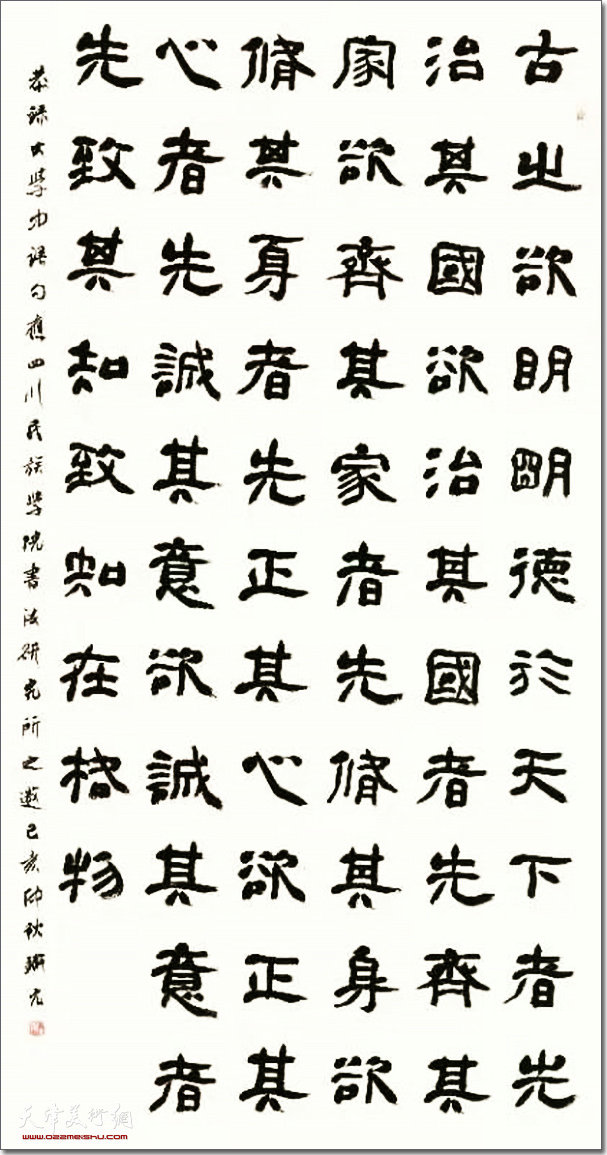 古之欲眀明德於天下者先
治其國欲治其國者先齊其
家欲齊其家者先脩其身欲
脩其身者先正其心欲正其
心者先誠其意欲誠其意者
先致其知致知在格物
恭録大學中語句應四川民族學院書法研究所之邀己亥仲秋
天津美術網
www.022meishu.com